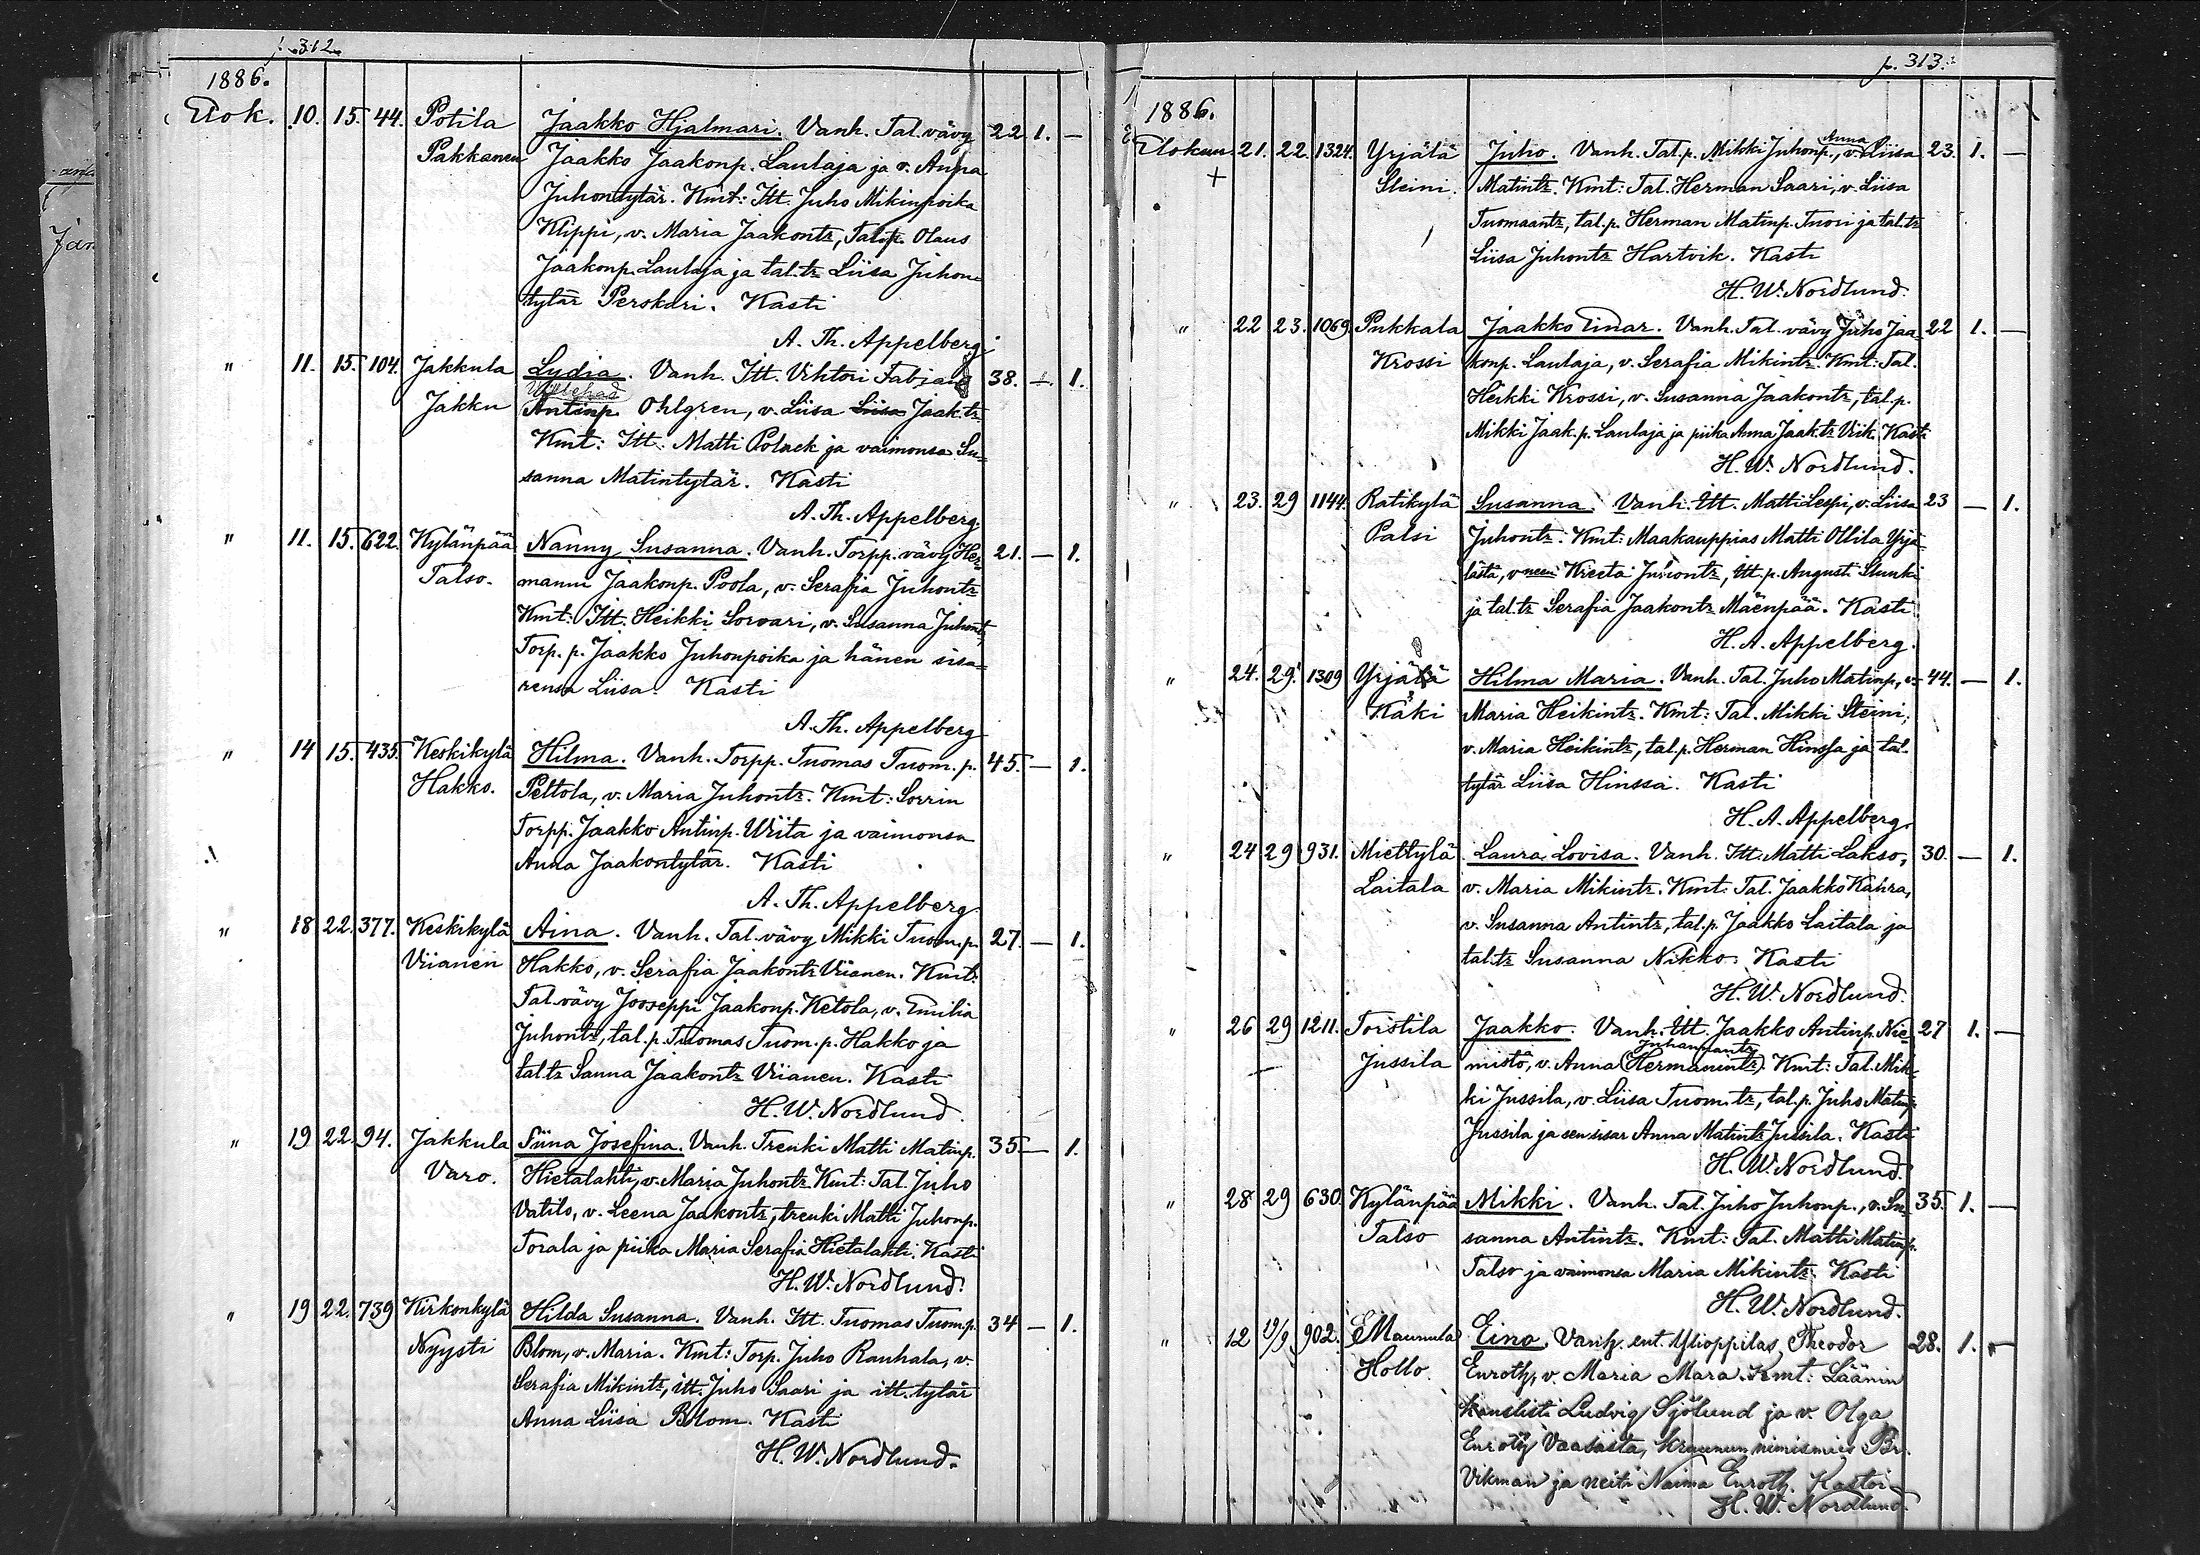 p. 312.
1886.
Elok. 10. 15. 44. Potila Jaakko Hjalmari. Vanh. Tal. vävy 22 1. —
Pakkanen Jaakko Jaakonp. Laulaja ja v. Anna
Juhontytär. Kmt: Itt. Juho Mikinpoika
Klippi, v. Maria Jaakontr, Tal.p. Olaus
Jaakonp. Laulaja ja tal.tr Liisa Juhon-
tytär Perskari. Kasti
A. Th. Appelberg.
" 11. 15. 104. Jakkula Lydia. Vanh. Itt. Vihtori Fabian 38. — 1.
Jakku Antinp. Ohlgren, v. Liisa Liisa Jaak.tr
Kmt: Itt. Matti Polack ja vaimonsa Su-
sanna Matintytär. Kasti
A. Th. Appelberg.
" 11. 15. 622. Kylänpää Nanny Susanna. Vanh. Torpp. vävy Her- 21. — 1.
Talso. mannu Jaakonp. Poola, v. Serafia Juhontr
Kmt: Itt. Heikki Sorvari, v. Susanna Juhont,
Torp. p. Jaakko Juhonpoika ja hänen sisa-
rensa Liisa. Kasti
A. Th. Appelberg
" 14 15. 435. Keskikylä Hilma. Vanh. Torpp. Tuomas Tuom. p. 45. — 1.
Hakko. Peltola, v. Maria Juhontr. Kmt: Sorrin
Torpp. Jaakko Antinp. Wiita ja vaimonsa
Anna Jaakontytär. Kasti
A. Th. Appelberg.
" 18 22. 377. Keskikylä Aina. Vanh. Tal. vävy Mikki Tuom.p. 27. — 1.
Viianen Hakko, v. Serafia Jaakontr Viianen. Kmt:
Tal. vävy Jooseppi Jaakonp. Ketola, v. Emilia
Juhontr, tal. p. Tuomas Tuom. p. Hakko ja
tal.tr Sanna Jaakontr Viianen. Kasti
H. W. Nordlund
" 19 22. 94. Jakkula Siina Josefina. Vanh. Trenki Matti Matinp. 35 — 1.
Varo. Hietalahti, v. Maria Juhontr Kmt: Tal. Juho
Vatilo, v. Leena Jaakontr, trenki Matti Juhonp.
Torala ja piika Maria Serafia Hietalahti. Kasti
H. W. Nordlund.
" 19 22. 739 Kirkonkylä Hilda Susanna. Vanh. Itt. Tuomas Tuom.p. 34 — 1.
Nyysti Blom, v. Maria. Kmt: Torp. Juho Rauhala, v.
Serafia Mikintr, itt. Juho Saari ja itt. tytär
Anna Liisa Blom. Kasti
H. W. Nordlund.
p. 313.
1886.
Elokuu 21. 22. 1324. Yrjälä Juho. Vanh. Tal. p. Mikki Juhonp., v. Anna Liisa 23. 1. —
+ Steini. Matintr. Kmt: Tal. Herman Saari, v. Liisa
Tuomaantr, tal. p. Herman Matinp. Tuori ja tal.tr
Liisa Juhontr Hartvik. Kasti
H. W. Nordlund.
" 22 23. 1069. Pukkala Jaakko Einar. Vanh. Tal. vävy Juho Jaa- 22 1. —
Krossi konp. Laulaja, v. Serafia Mikintr. Kmt: Tal.
Heikki Krossi, v. Susanna Jaakontr, tal. p.
Mikki Jaak. p. Laulaja ja piika Anna Jaak.tr Viik. Kasti
H. W. Nordlund.
" 23. 29 1144. Ratikylä Susanna. Vanh. Itt. Matti Lespi, v. Liisa 23 — 1.
Palsi Juhontr. Kmt: Maakauppias Matti Ollila Yrjä-
lästä, v. Kreeta Juhontr, Itt. p. Augusti Slunki
ja tal.tr Serafia Jaakontr Mäenpää. Kasti
H. A. Appelberg.
" 24. 29. 1309 Yrjälä Hilma Maria. Vanh. Tal. Juho Matinp, v. 44. — 1.
Käki Maria Heikintr. Kmt: Tal. Mikki Steini,
v. Maria Heikintr, tal. p. Herman Hinssa ja tal.
tytär Liisa Hinssa. Kasti
H. A. Appelberg.
" 24 29 931. Miettylä Laura Lovisa. Vanh. Itt. Matti Lakso, 30. — 1.
Laitala v. Maria Mikintr. Kmt: Tal. Jaakko Kahra,
v. Susanna Antintr, tal. p. Jaakko Laitala ja
tal.tr Susanna Nikko. Kasti
H. W. Nordlund.
" 26 29 1211. Toistila Jaakko. Vanh. Itt. Jaakko Antinp. Nie- 27 1. —
Juhannantr
Jussila mistö, v. Anna (Hermanintr). Kmt: Tal. Mik-
ki Jussila, v. Liisa Tuom.tr, tal. p. Juho Matinp.
Jussila ja sen sisar Anna Matintr Jussila. Kasti
H. W. Nordlund.
" 28 29 630. Kylänpää Mikki. Vanh. Tal. Juho Juhonp., v. Su- 35. 1. —
Talso sanna Antintr. Kmt: Tal. Matti Matinp.
Talso ja vaimonsa Maria Mikintr. Kasti
H. W. Nordlund.
" 12 19/9 902. Maunula Eino. Vanh. ent. Ylioppilas Theodor 28. 1. —
Hollo. Euroth, v. Maria Mara. Kmt: Läänin
kanslisti Ludvig Sjölund ja v. Olga
Euroth Vaasasta, kruunun nimismies Br.
Vikman ja neiti Naima Euroth. Kastoi
H. W. Nordlund